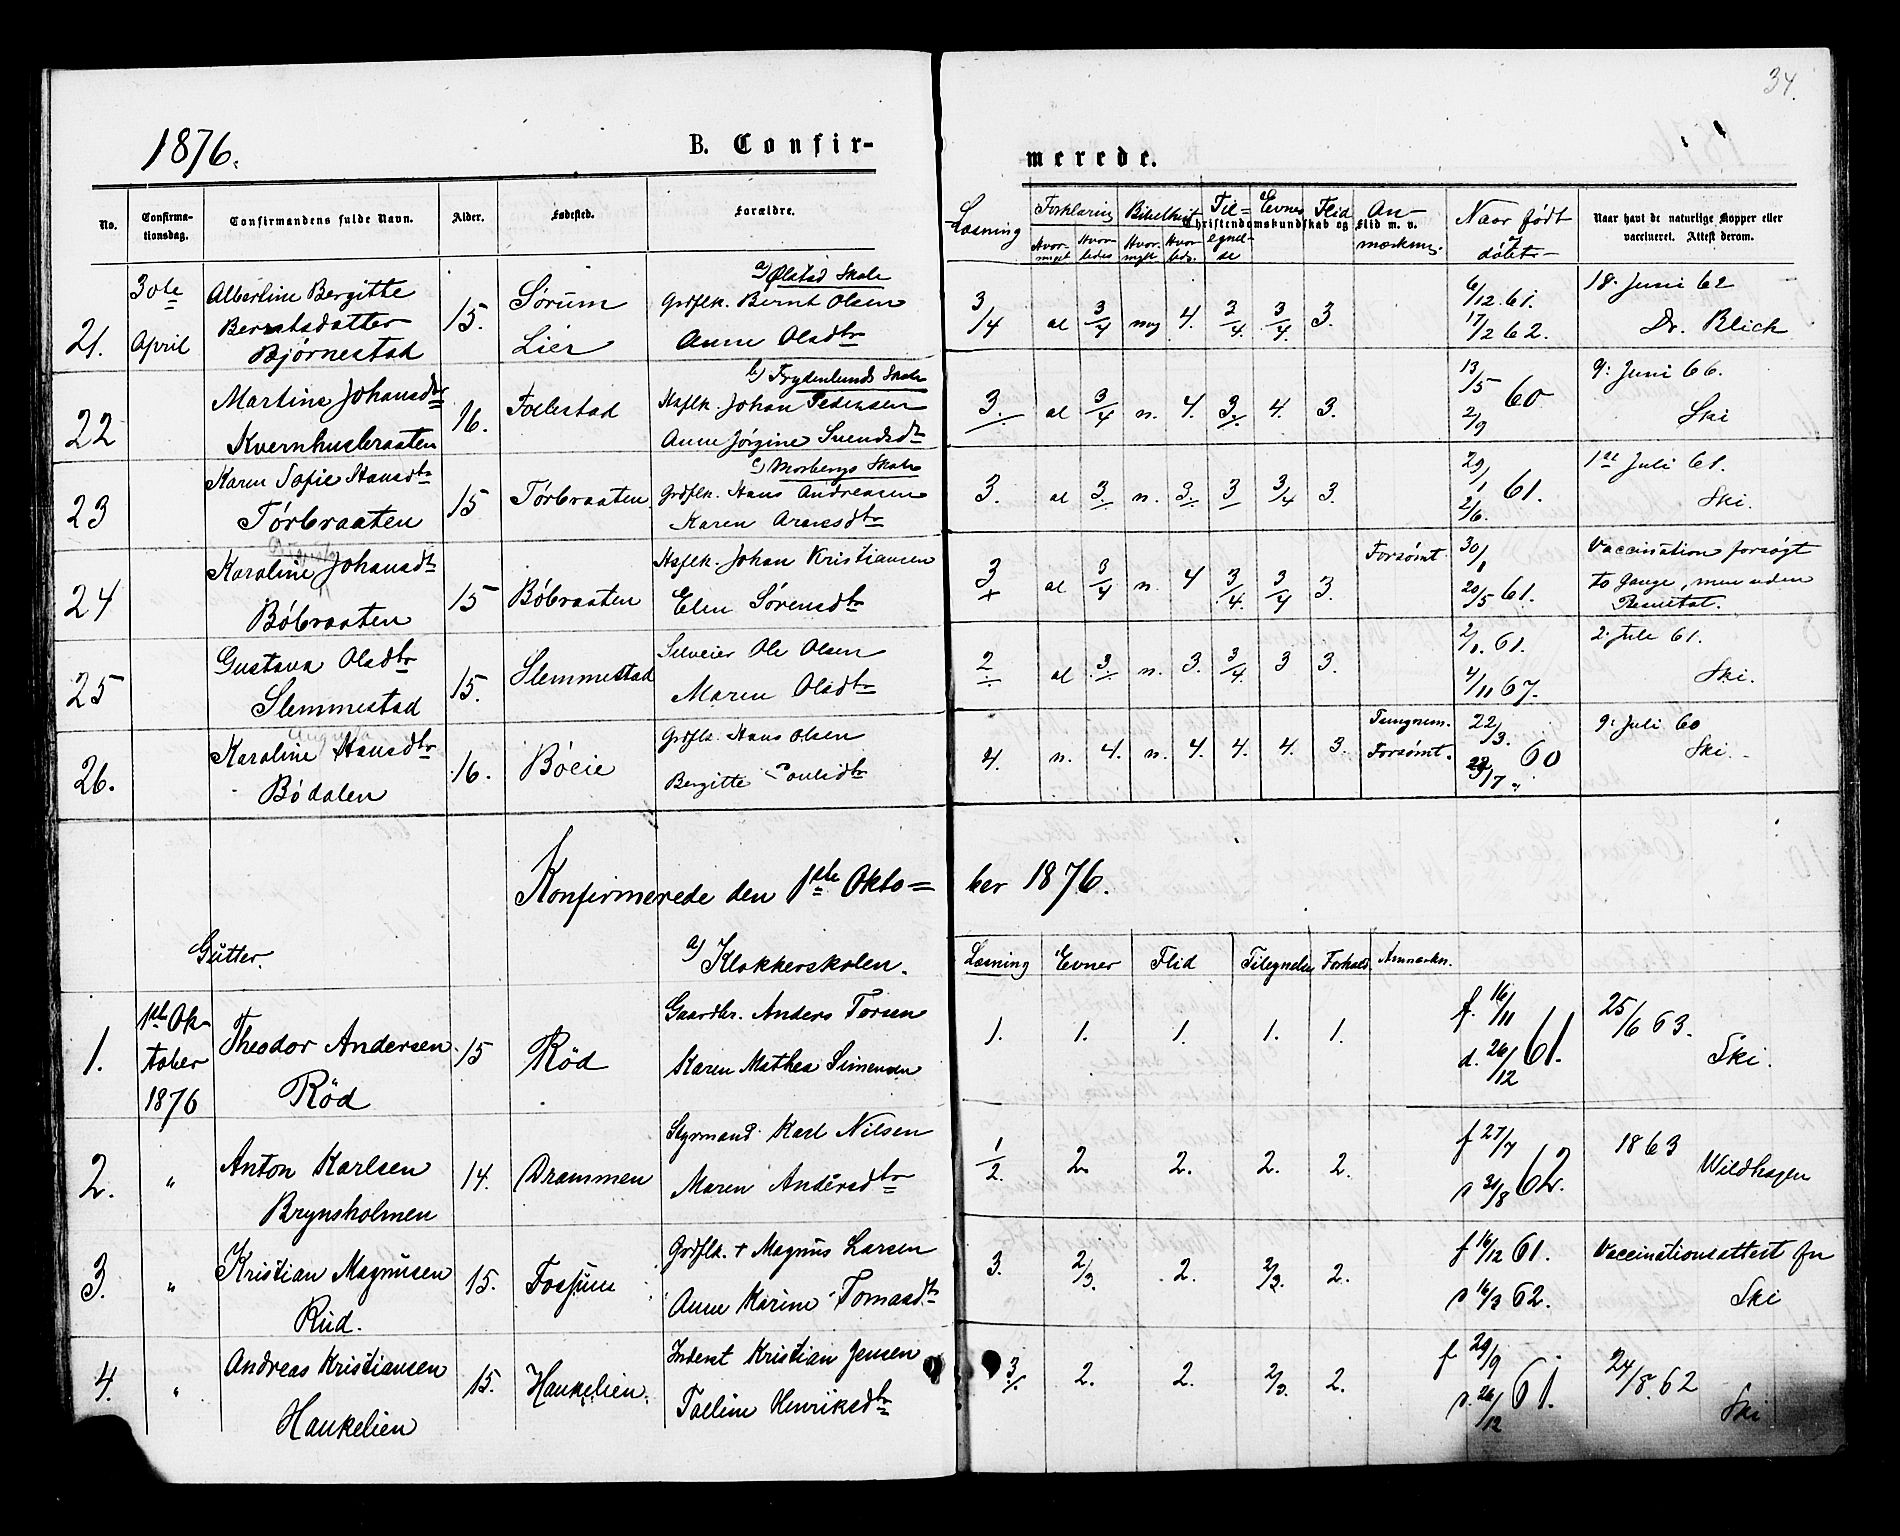 34.
1876.
B. Confir-
merede.
No.
Confirma-
tionsdag.
Confirmandens fulde Navn.
Alder.
Fødested.
Forældre.
Læsning
Forklaring
Hvor-
meget
Hvor-
ledes
Bibelhist.
Hvor-
meget
Hvor
ledes
Til=
egnel-
se
Evner
Flid
Christendomskundskab og Flid m. v.
An-
mærkning.
Naar født
og
døbt
Naar havt de naturlige Kopper eller
vaccineret. Attest derom.
21. 30te April
Albertine Bergitte
Berntsdatter
Bjørnestad
15.
Sørum
Lier
a) Ølstad Skole
Grdflk. Bernt Olsen
Anne Olsdtr
3/4 al 3/4 mg 4. 3/4. 3/4. 3.
6/12 61.
17/2 62.
18. Juni 62
Dr. Blich
22
Martine Johansdtr
Kvernhusbraaten
16.
Follestad
b) Frydenlunds Skole
Husflk. Johan Pedersen
Anne Jørgine Svendsdtr
3. al 3/4 n. 4. 3. 4. 3.
13/5 60
2/9
9. Juni 66.
Ski
23
Karen Sofie Hansdtr
Tørbraaten
15
Tørbraaten
c) Morbergs Skole
Grdflk. Hans Andreasen
Karen Arnesdtr
3. al 3. n. 3. 3 3/4 3.
29/1 61.
2/6.
1ste Juli 61.
Ski.
24
Karoline Johansdtr
Böbraaten
15
Böbraaten
Husflk. Johan Kristiansen
Elen Sørensdtr
3 al 3/4 n. 4 3/4. 3/4 3.
Forsømt.
30/1
20/5 61.
Vaccination forsøgt
to Gange, men uden
Resultat.
25
Gustava Olsdtr
Slemmestad
15.
Slemmestad
Selveier Ole Olsen
Maren Olsdtr
2. al 3. n. 3. 3/4. 3 3.
2/1. 61.
4/11 67.
2. Juli 61.
Ski.
26.
Augusta
Karoline Hansdtr
Bødalen
16.
Böeie
Grdflk. Hans Olsen
Bergitte Poulsdtr
4. n. 4. n. 4. 4. 4. 3.
Tungnem.
Forsømt.
22/3. 60
/7
9. Juli 60
Ski.
Konfirmerede den 1ste Okto=
ber 1876.
Gutter.
a) Klokkerskolen.
Læsning Evner Flid Tilegnelse Forhold Anmærkn.
1. 1ste Ok-
tober
1876
Theodor Andersen
Röd
15
Röd
Gaardbr. Anders Torsen
Karen Mathea Simensen
1. 1. 1. 1. 1.
f. 16/11
d. 26/12 61.
25/6 63.
Ski.
2. "
Anton Karlsen
Brynsholmen
14.
Drammen
Styrmand Karl Nilsen
Maren Andersdtr
1/2 2. 2. 2. 2.
f 27/7
d 31/8 62.
1863
Wildhagen
3. "
Kristian Magnusen
Rud.
15.
Fossum
Grdflk. + Magnus Larsen
Anne Karine Tomasdtr
3. 2/3. 2. 2/3. 2.
f 16/12 61.
d 16/3 62.
Vaccinationsattest fra
Ski
4. "
Andreas Kristiansen
Haukelien
15.
Haukelien.
Inderst Kristian Jensen
Talline Henriksdtr
3/. 2. 2. 2/3. 2.
f 29/9
d. 26/12 61.
24/8. 62
Ski